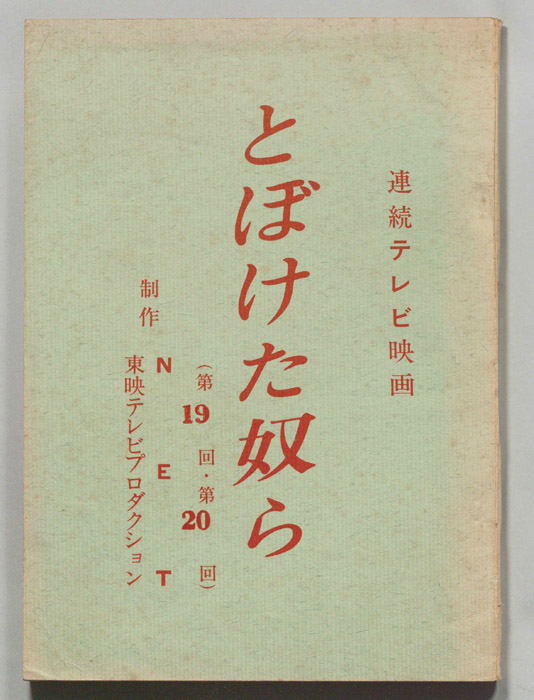 連続テレビ映画
とぼけた奴ら
(第19回・第20回)
制作
NET
東映テレビプロダクション